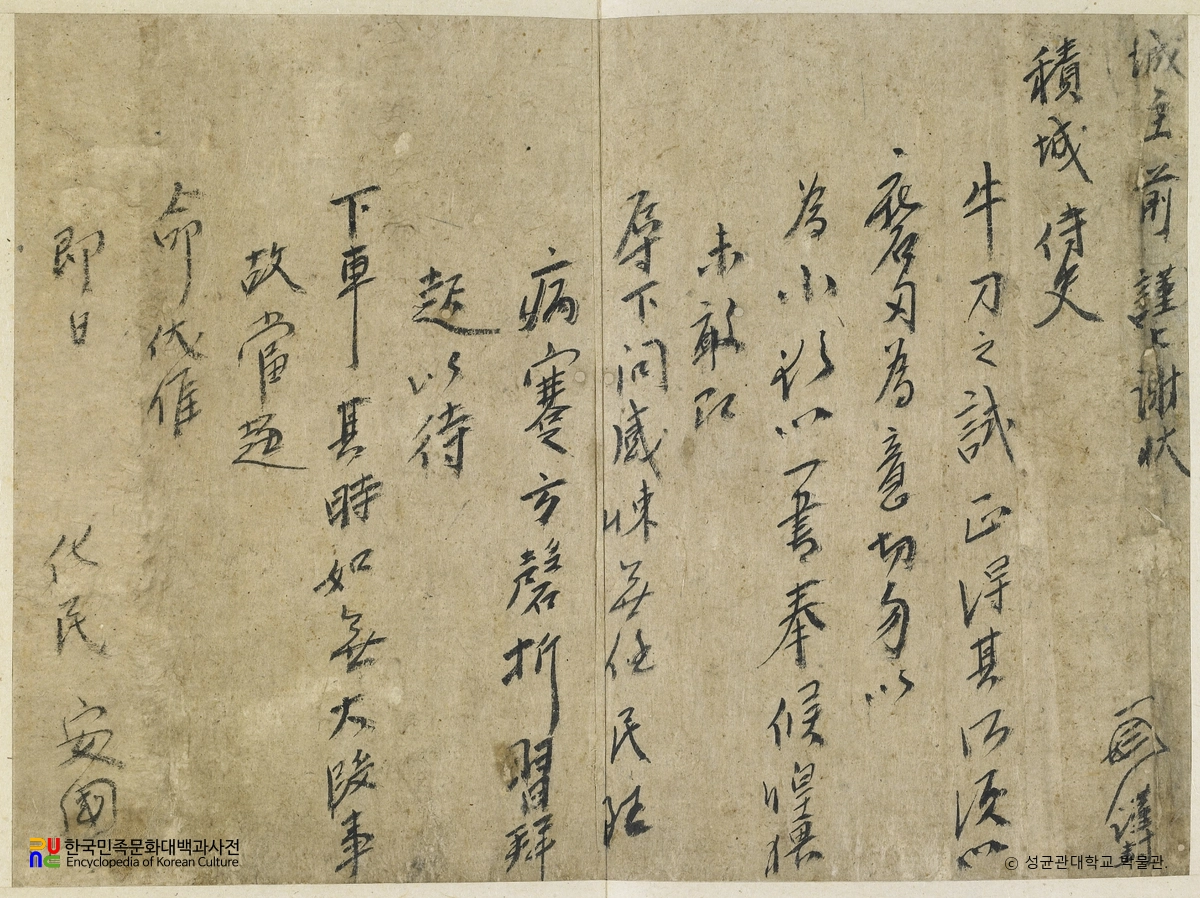 城主前 謹上謝狀
積城 侍史
牛刀之試 正得其所 須以
磨刃爲意 切勿以
爲小 以一書奉候 惶
未敢
辱下問 感悚無任 民
病蹇 方磬折習拜
起 以待
下車 其時如無大段事
故 當趨
命 伏惟
即日 化民 安國
한국민족문화대백과사전
Encyclopedia of Korean Culture
© 성균관대학교 박물관.